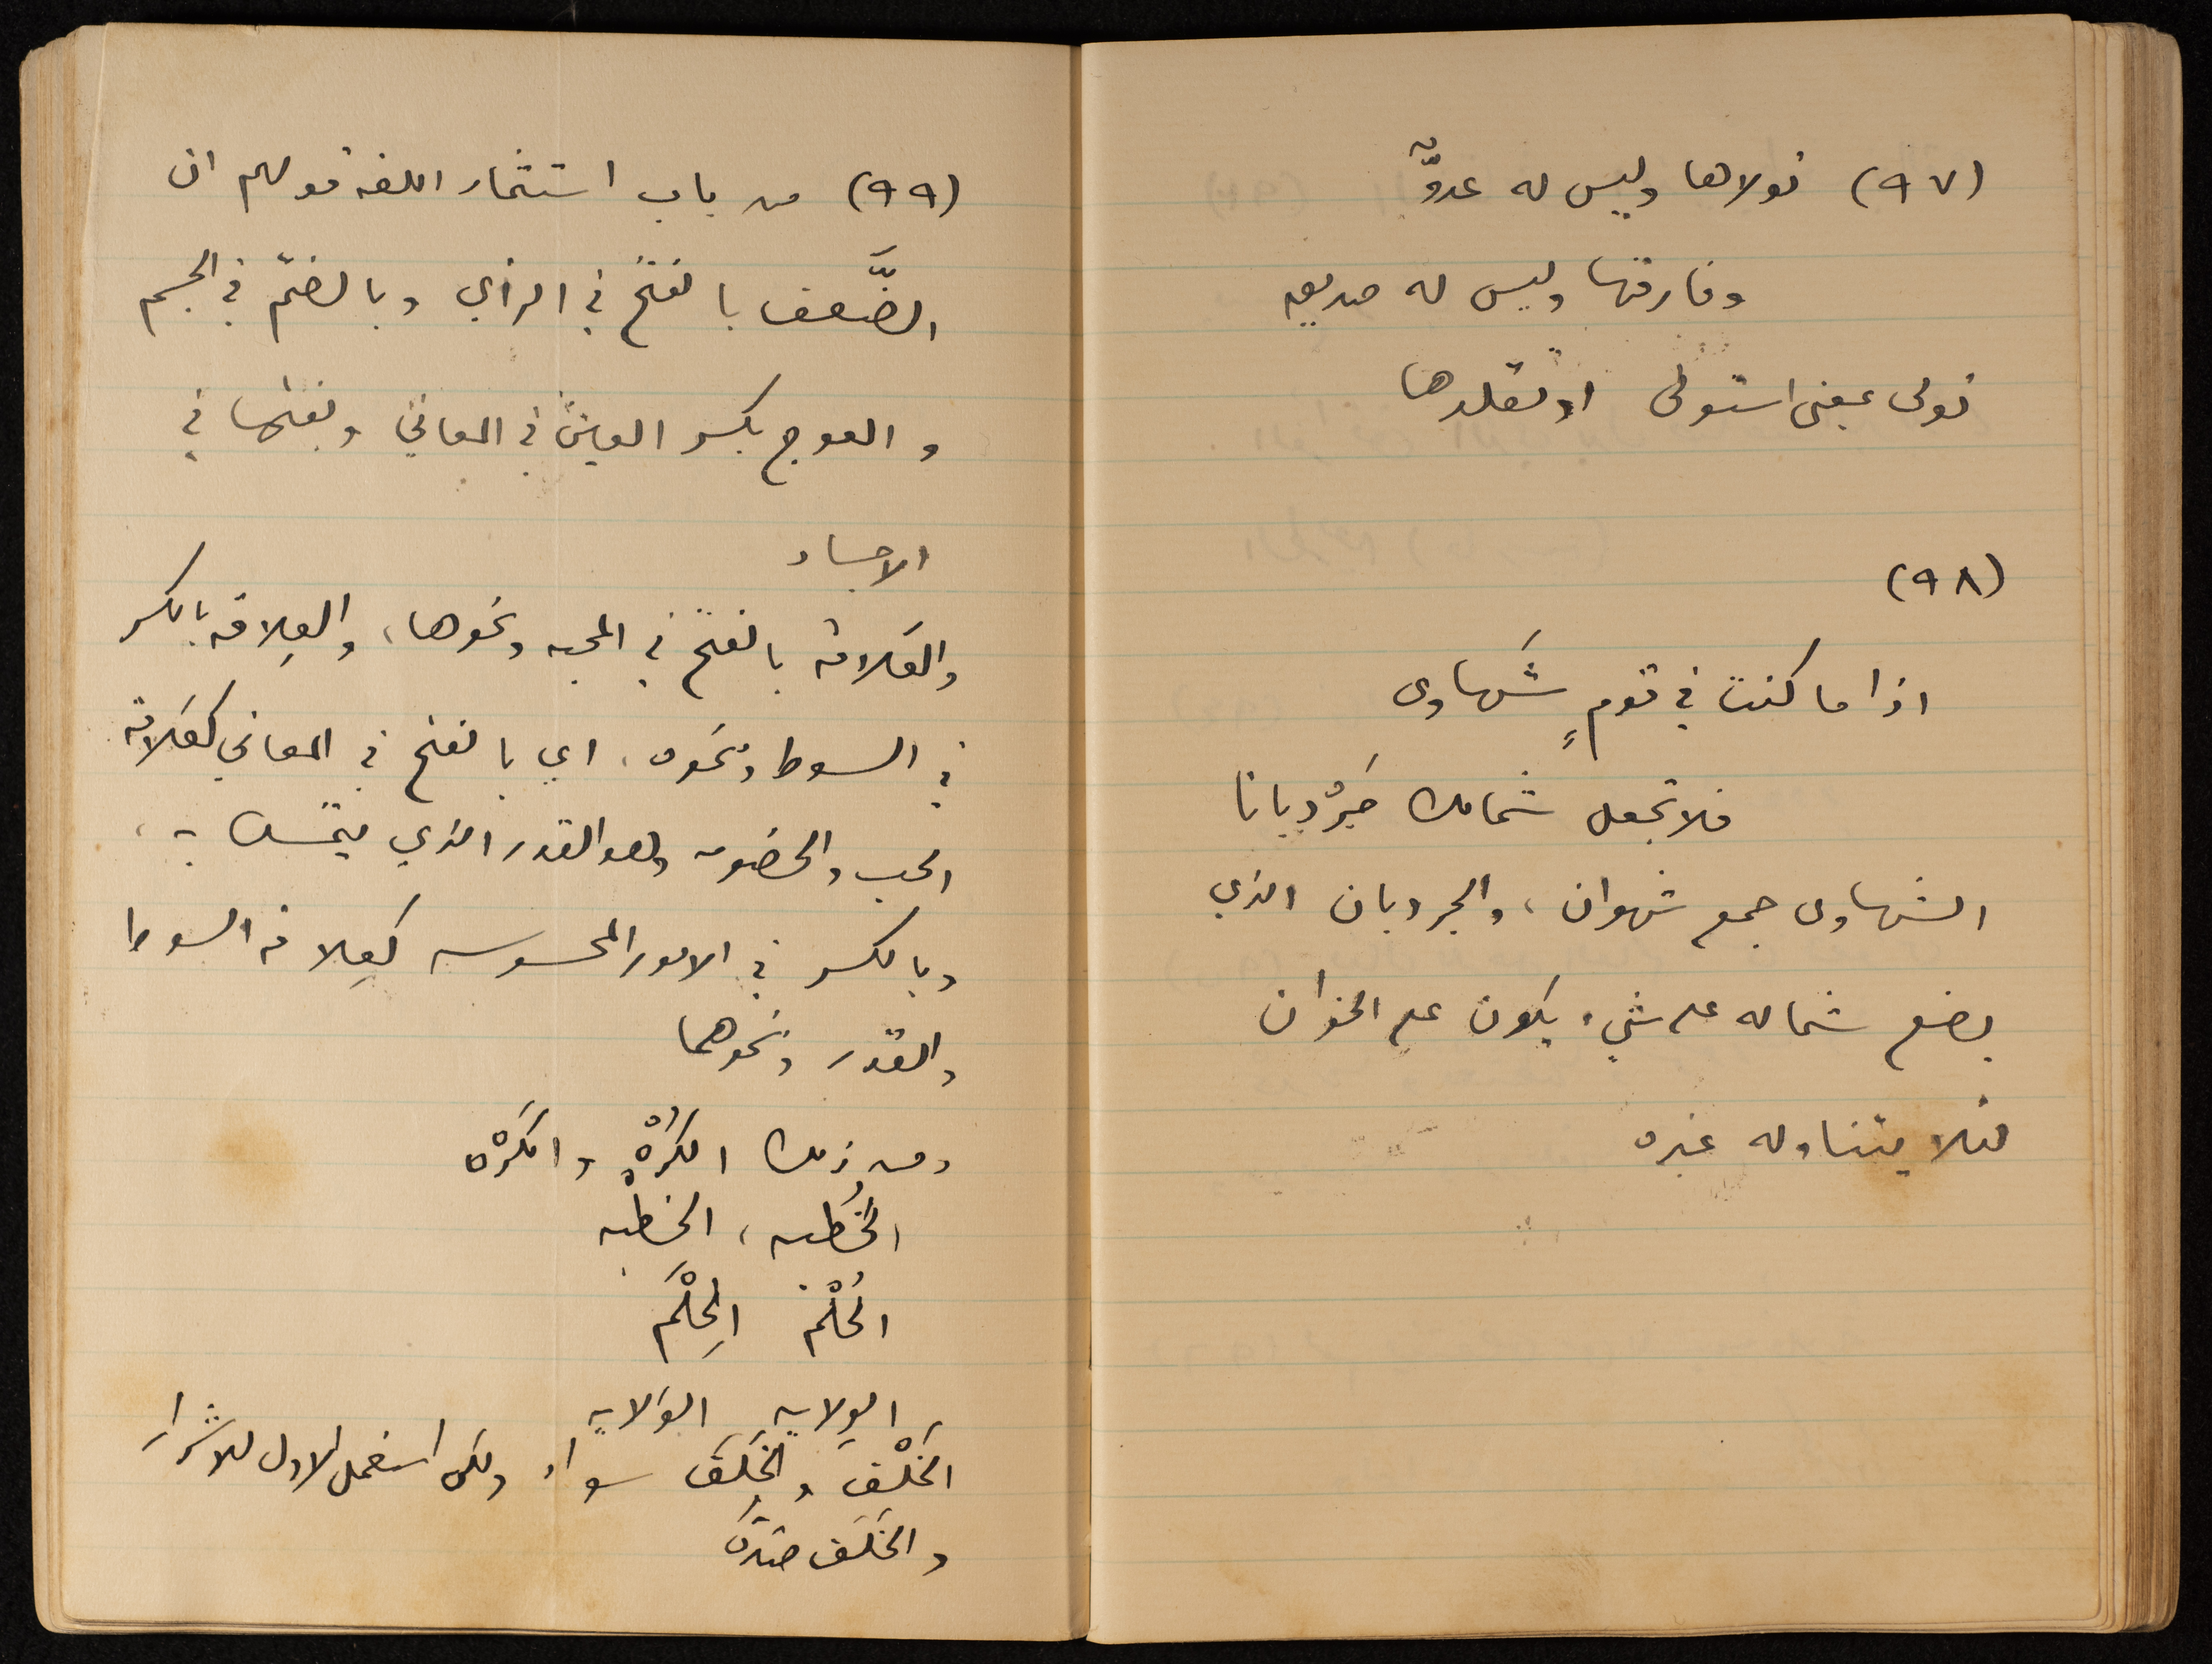 (٩٧) تولاها وليس له عدوٌّ
وفارقها وليس له صديق
تولى بمعنى استولى او تقلدها
(٩٨)
اذا ما كنت في قومٍ شَهاوى
فلا تجعل شمالك جَرْدبانا
الشهاوى جمع شهوان، والجردبان الذي
يضع شماله على شيء يكون على الخوان
لئلا يتناوله غيره
(٩٩) من باب استثمار اللغة قولهم ان
الضَّعف بالفتح في الرأي وبالضمّ في الجسم
والعوج بكسر العين في المعاني وبفتحها في
الاجساد
والعَلاقة بالفتح في المحبه ونحوها، والعِلاقه بالكسر
في السوط ونحوه، اي بالفتح في المعاني كعَلاقة
الحب والخصومه وهو القدر الذي يتمسك به،
وبالكسر في الامور المحسوسه كعِلاقة السوط
والقدر ونحوهما
ومن ذلك الكُرْه والكَرْه
الخُطبه، الخِطبه
الحُلْم الحِلْم
الوِلايه الوَلايه
الخَلْف والخَلَف سواء ولكن استعمل الاول للاشرار
والخَلَف ضدّه